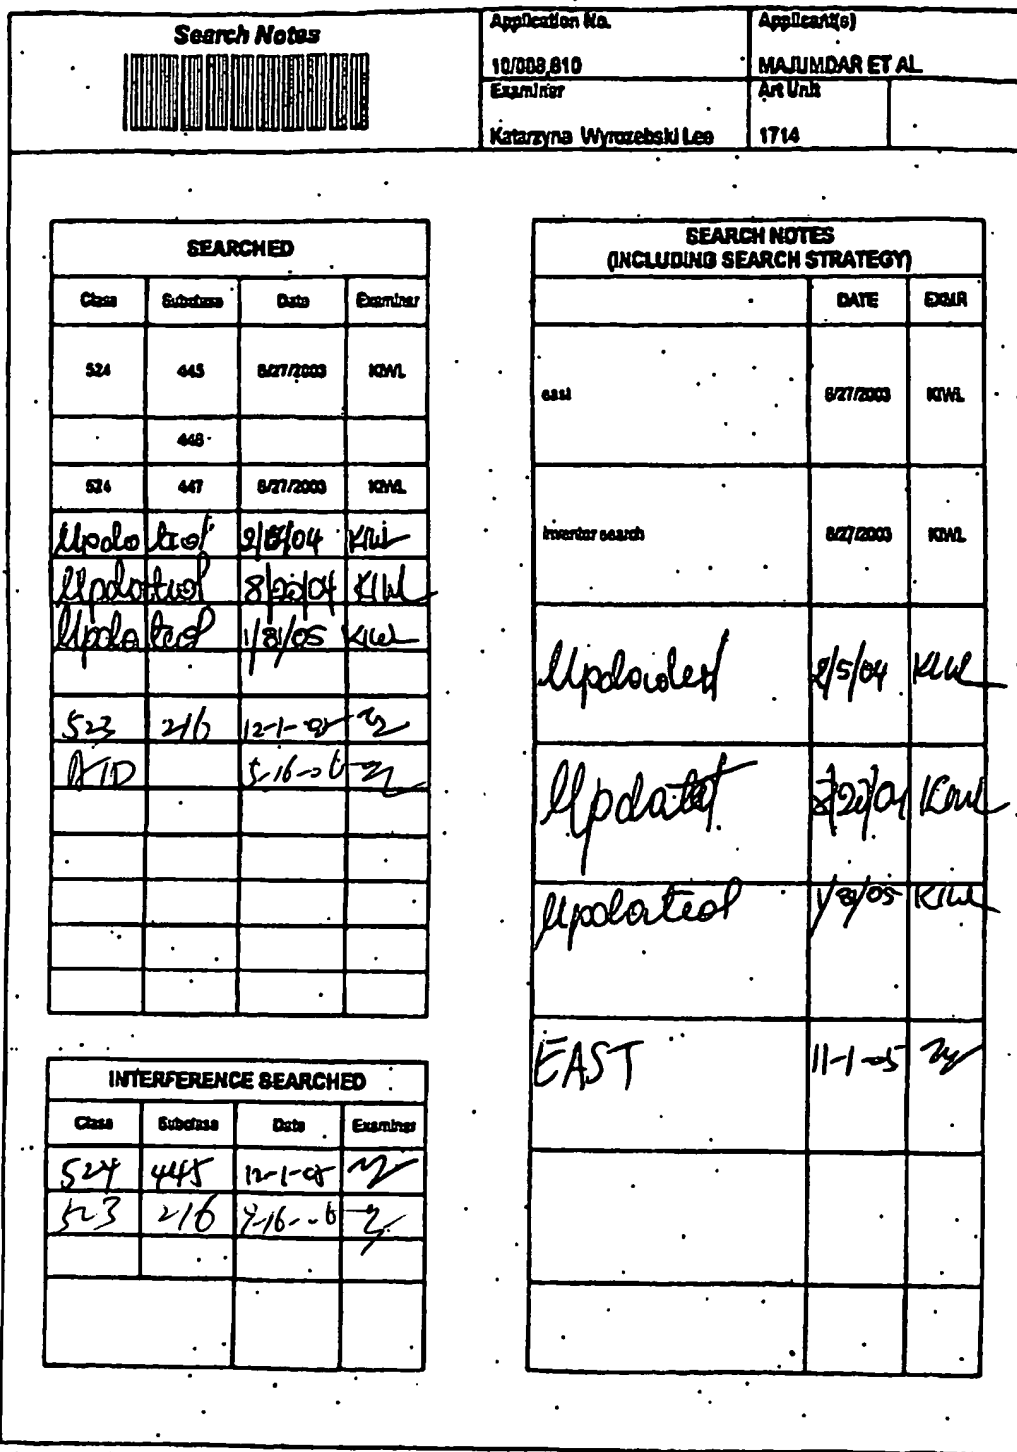 Search Notes
Application No.
10/008,810
Applicant(s)
MAJUMDAR ET AL
Examiner
Katarzyna Wyrozebski Lee
Art Unit
1714
SEARCHED
Class Subclass Date Examiner
524 445 8/27/2003 KIWL
448
524 447 8/27/2003 KIWL
Updated 04 KIWL
Updated 04 KIWL
Updated 1/ /05 KIWL
523 216 12-1-
5-16-06
INTERFERENCE SEARCHED
Class Subclass Date Examiner
524 445 12-1-05
523 216
SEARCH NOTES
(INCLUDING SEARCH STRATEGY)
DATE EXMR
east 8/27/2003 KIWL
inventor search 8/27/2003 KIWL
Updated 2/5/04 KIWL
Updated 04 KIWL
Updated 05 KIWL
EAST 11-1-05